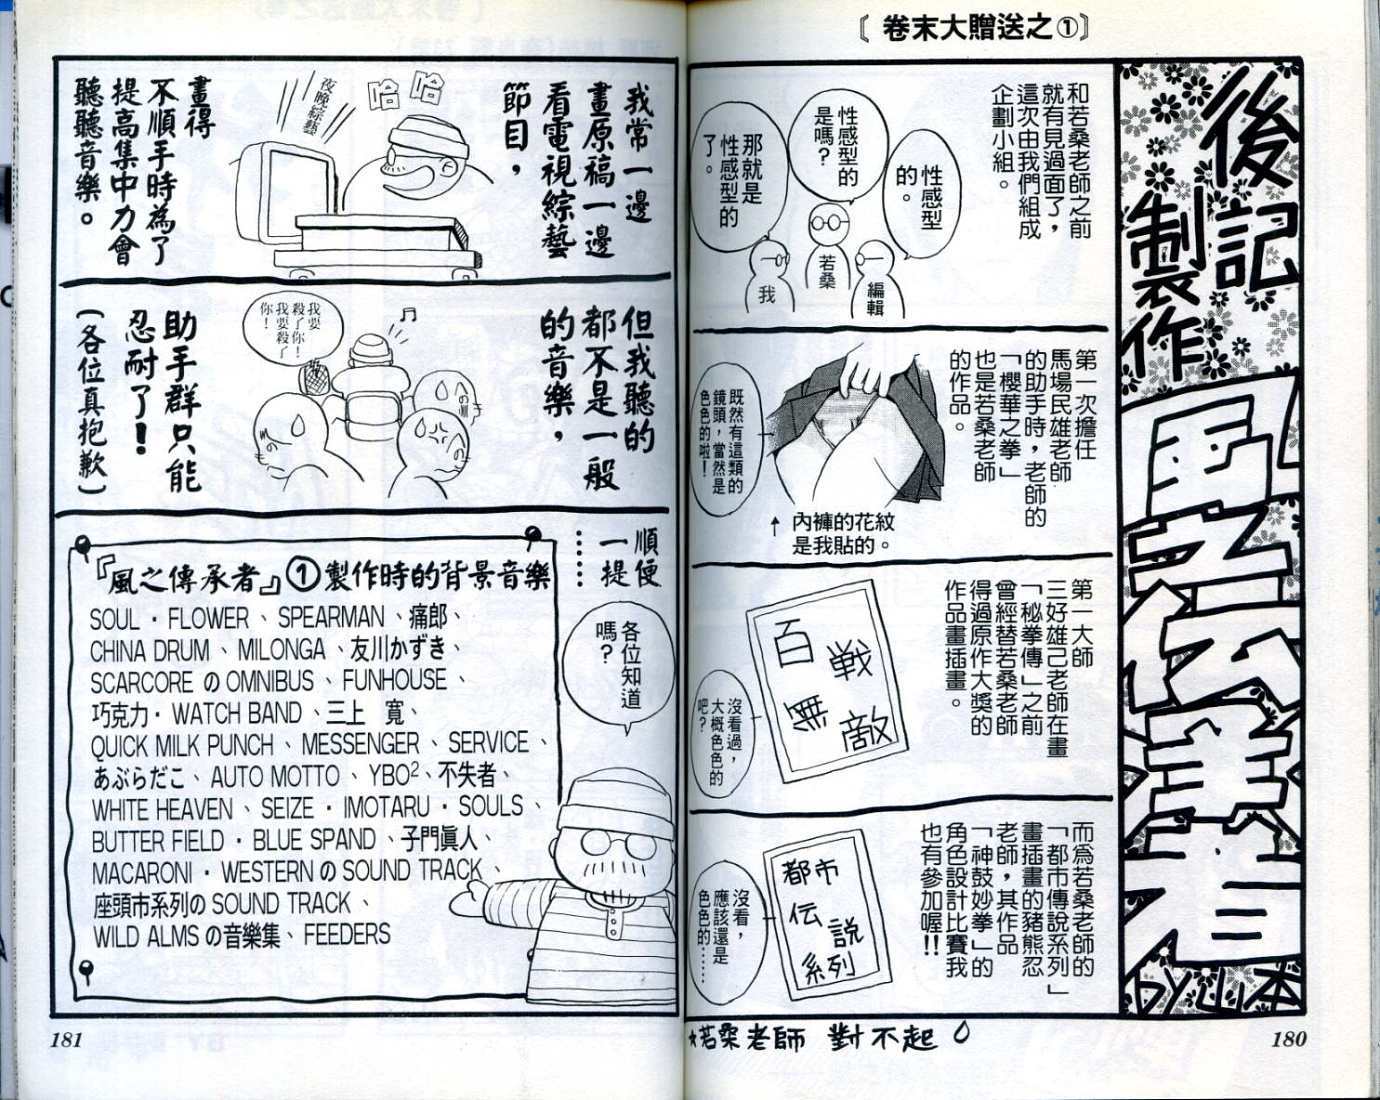 〖卷末大贈送之①〗
後記
製作
風之傳承者
by山本
和若桑老師之前
就有見過面了，
這次由我們組成
企劃小組。
性感型
的。
性感型的
是嗎？
那就是
性感型的
了。
編輯
若桑
我
第一次擔任
馬場民雄老師
的助手時，老師的
「櫻華之拳」
也是若桑老師
的作品。
既然有這類的
鏡頭，當然是
色色的啦！
↑內褲的花紋
是我貼的。
第一大師
三好雄己老師在畫
「秘拳傳」之前
曾經替若桑老師
得過原作大獎的
作品畫插畫。
百戰
無敵
沒看過，
大概色色的
吧？
而為若桑老師的
「都市傳說系列」
畫插畫的豬熊忍
老師，其作品
「神鼓妙拳」的
角色設計比賽我
也有參加喔!!
都市
伝說
系列
沒看，
應該還是
色色的……
★若桑老師 對不起
180
我常一邊
畫原稿一邊
看電視綜藝
節目，
哈哈
夜晚綜藝
畫得
不順手時為了
提高集中力會
聽聽音樂。
但我聽的
都不是一般
的音樂，
我要
殺了你！
我要殺了
你！
助手群只能
忍耐了！
(各位真抱歉)
順便
一提
……
各位知道
嗎？
『風之傳承者』①製作時的背景音樂
SOUL・FLOWER、SPEARMAN、痛郎、
CHINA DRUM、MILONGA、友川かずき、
SCARCORE のOMNIBUS、FUNHOUSE、
巧克力・WATCH BAND、三上 寬、
QUICK MILK PUNCH、MESSENGER、SERVICE、
あぶらだこ、AUTO MOTTO、YBO²、不失者、
WHITE HEAVEN、SEIZE・IMOTARU・SOULS、
BUTTER FIELD・BLUE SPAND、子門眞人、
MACARONI・WESTERNのSOUND TRACK、
座頭市系列のSOUND TRACK、
WILD ALMSの音樂集、FEEDERS
181